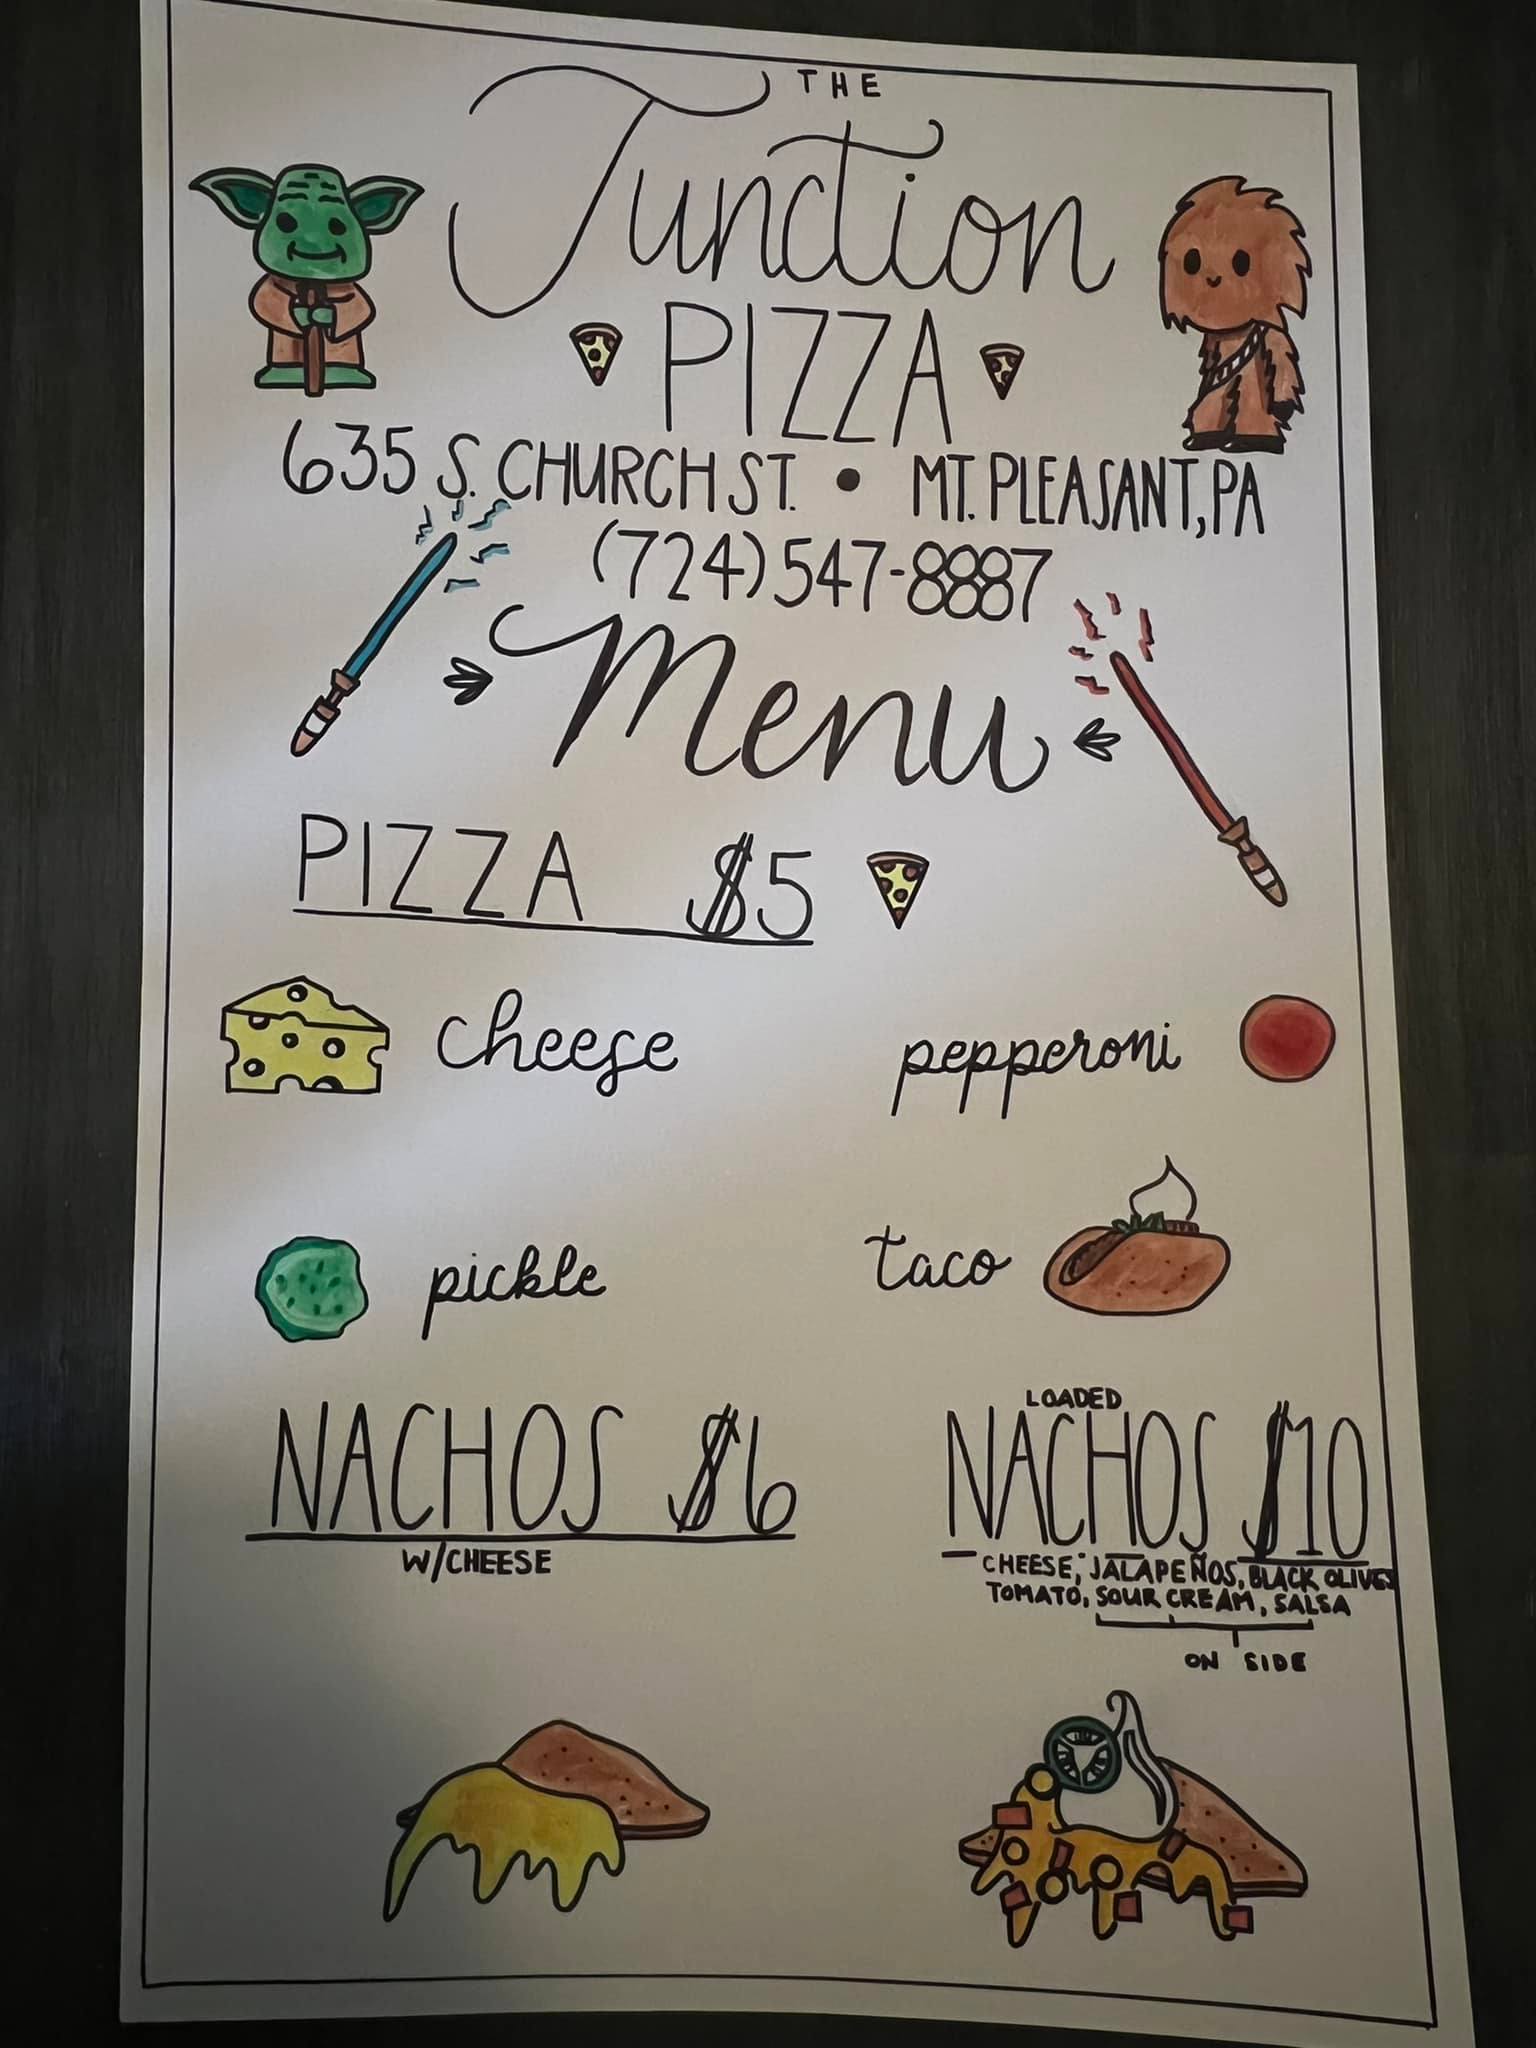 THE
Junction
PIZZA
635 S. CHURCH ST. • MT. PLEASANT, PA
(724) 547-8887
Menu
PIZZA $5
cheese pepperoni
pickle taco
LOADED
NACHOS $6 NACHOS $10
W/CHEESE CHEESE, JALAPEÑOS, BLACK OLIVES
TOMATO, SOUR CREAM, SALSA
ON SIDE